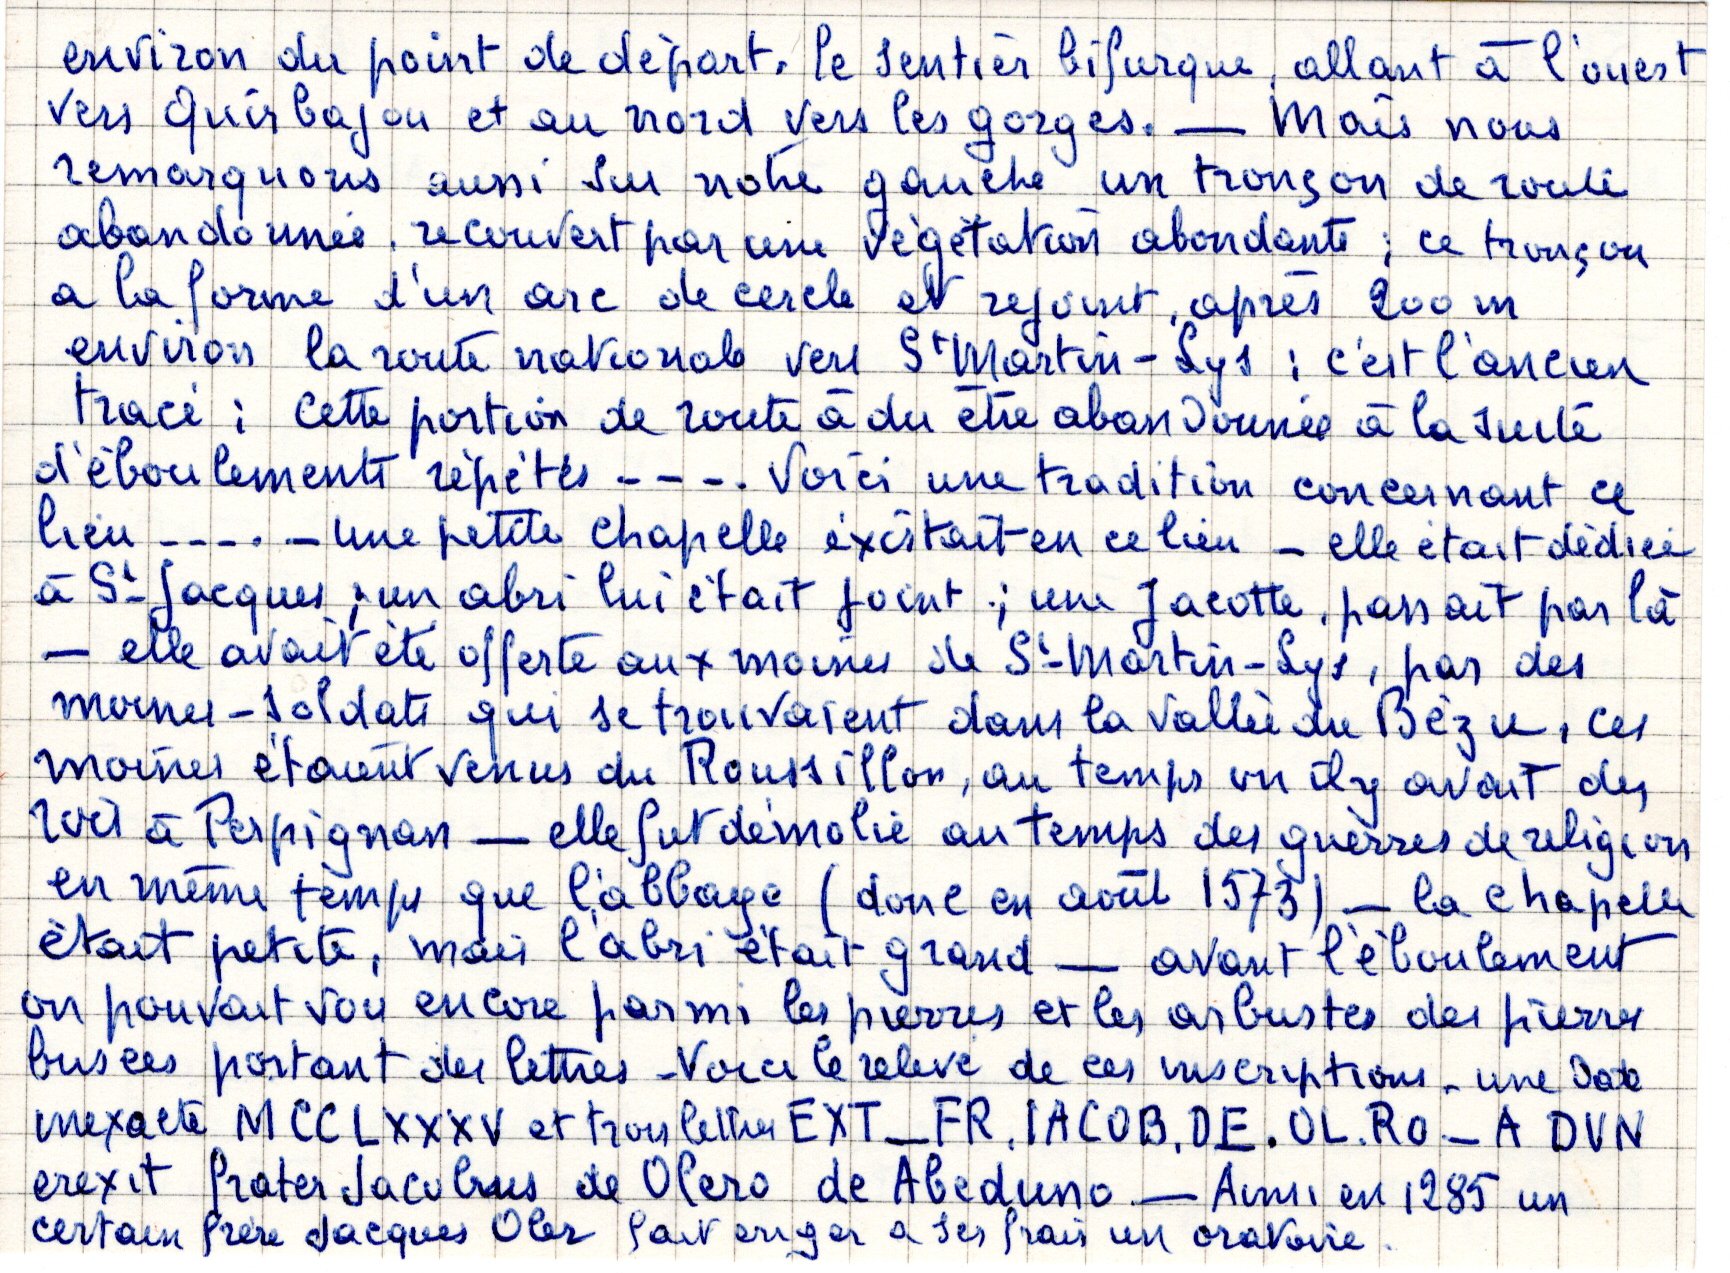 environ du point de départ. le sentier bifurque, allant à l'ouest
vers Quirbajou et au nord vers les gorges. — Mais nous
remarquons aussi sur notre gauche un tronçon de route
abandonnée, recouvert par une végétation abondante ; ce tronçon
a la forme d'un arc de cercle et rejoint, après 200 m
environ la route nationale vers St Martin-Lys : c'est l'ancien
tracé ; cette portion de route à du être abandonnée à la suite
d'éboulements répétés - - - -. Voici une tradition concernant ce
lieu - - - - . - une petite chapelle éxistait en ce lieu - elle était dédiée
à St Jacques ; un abri lui était joint ; une Jacotte, passait par là
— elle avait été offerte aux moines de St-Martin-Lys, par des
moines-soldats qui se trouvaient dans la vallée du Bézu, ces
moines étaient venus du Roussillon, au temps ou il y avait des
rois à Perpignan — elle fut démolie au temps des guerres de religion
en même temps que l'abbaye (donc en août 1573) — la chapelle
était petite, mais l'abri était grand — avant l'éboulement
on pouvait voir encore parmi les pierres et les arbustes des pierres
busées portant des lettres - Voici le relevé de ces inscriptions - une date
inexacte MCCLXXXV et trois lettres EXT_FR. IACOB. DE. OL. RO - A DVN
erexit frater Jacobus de Olero de Abeduno — Ainsi en 1285 un
certain frère Jacques Oler fait eriger a ses frais un oratoire.